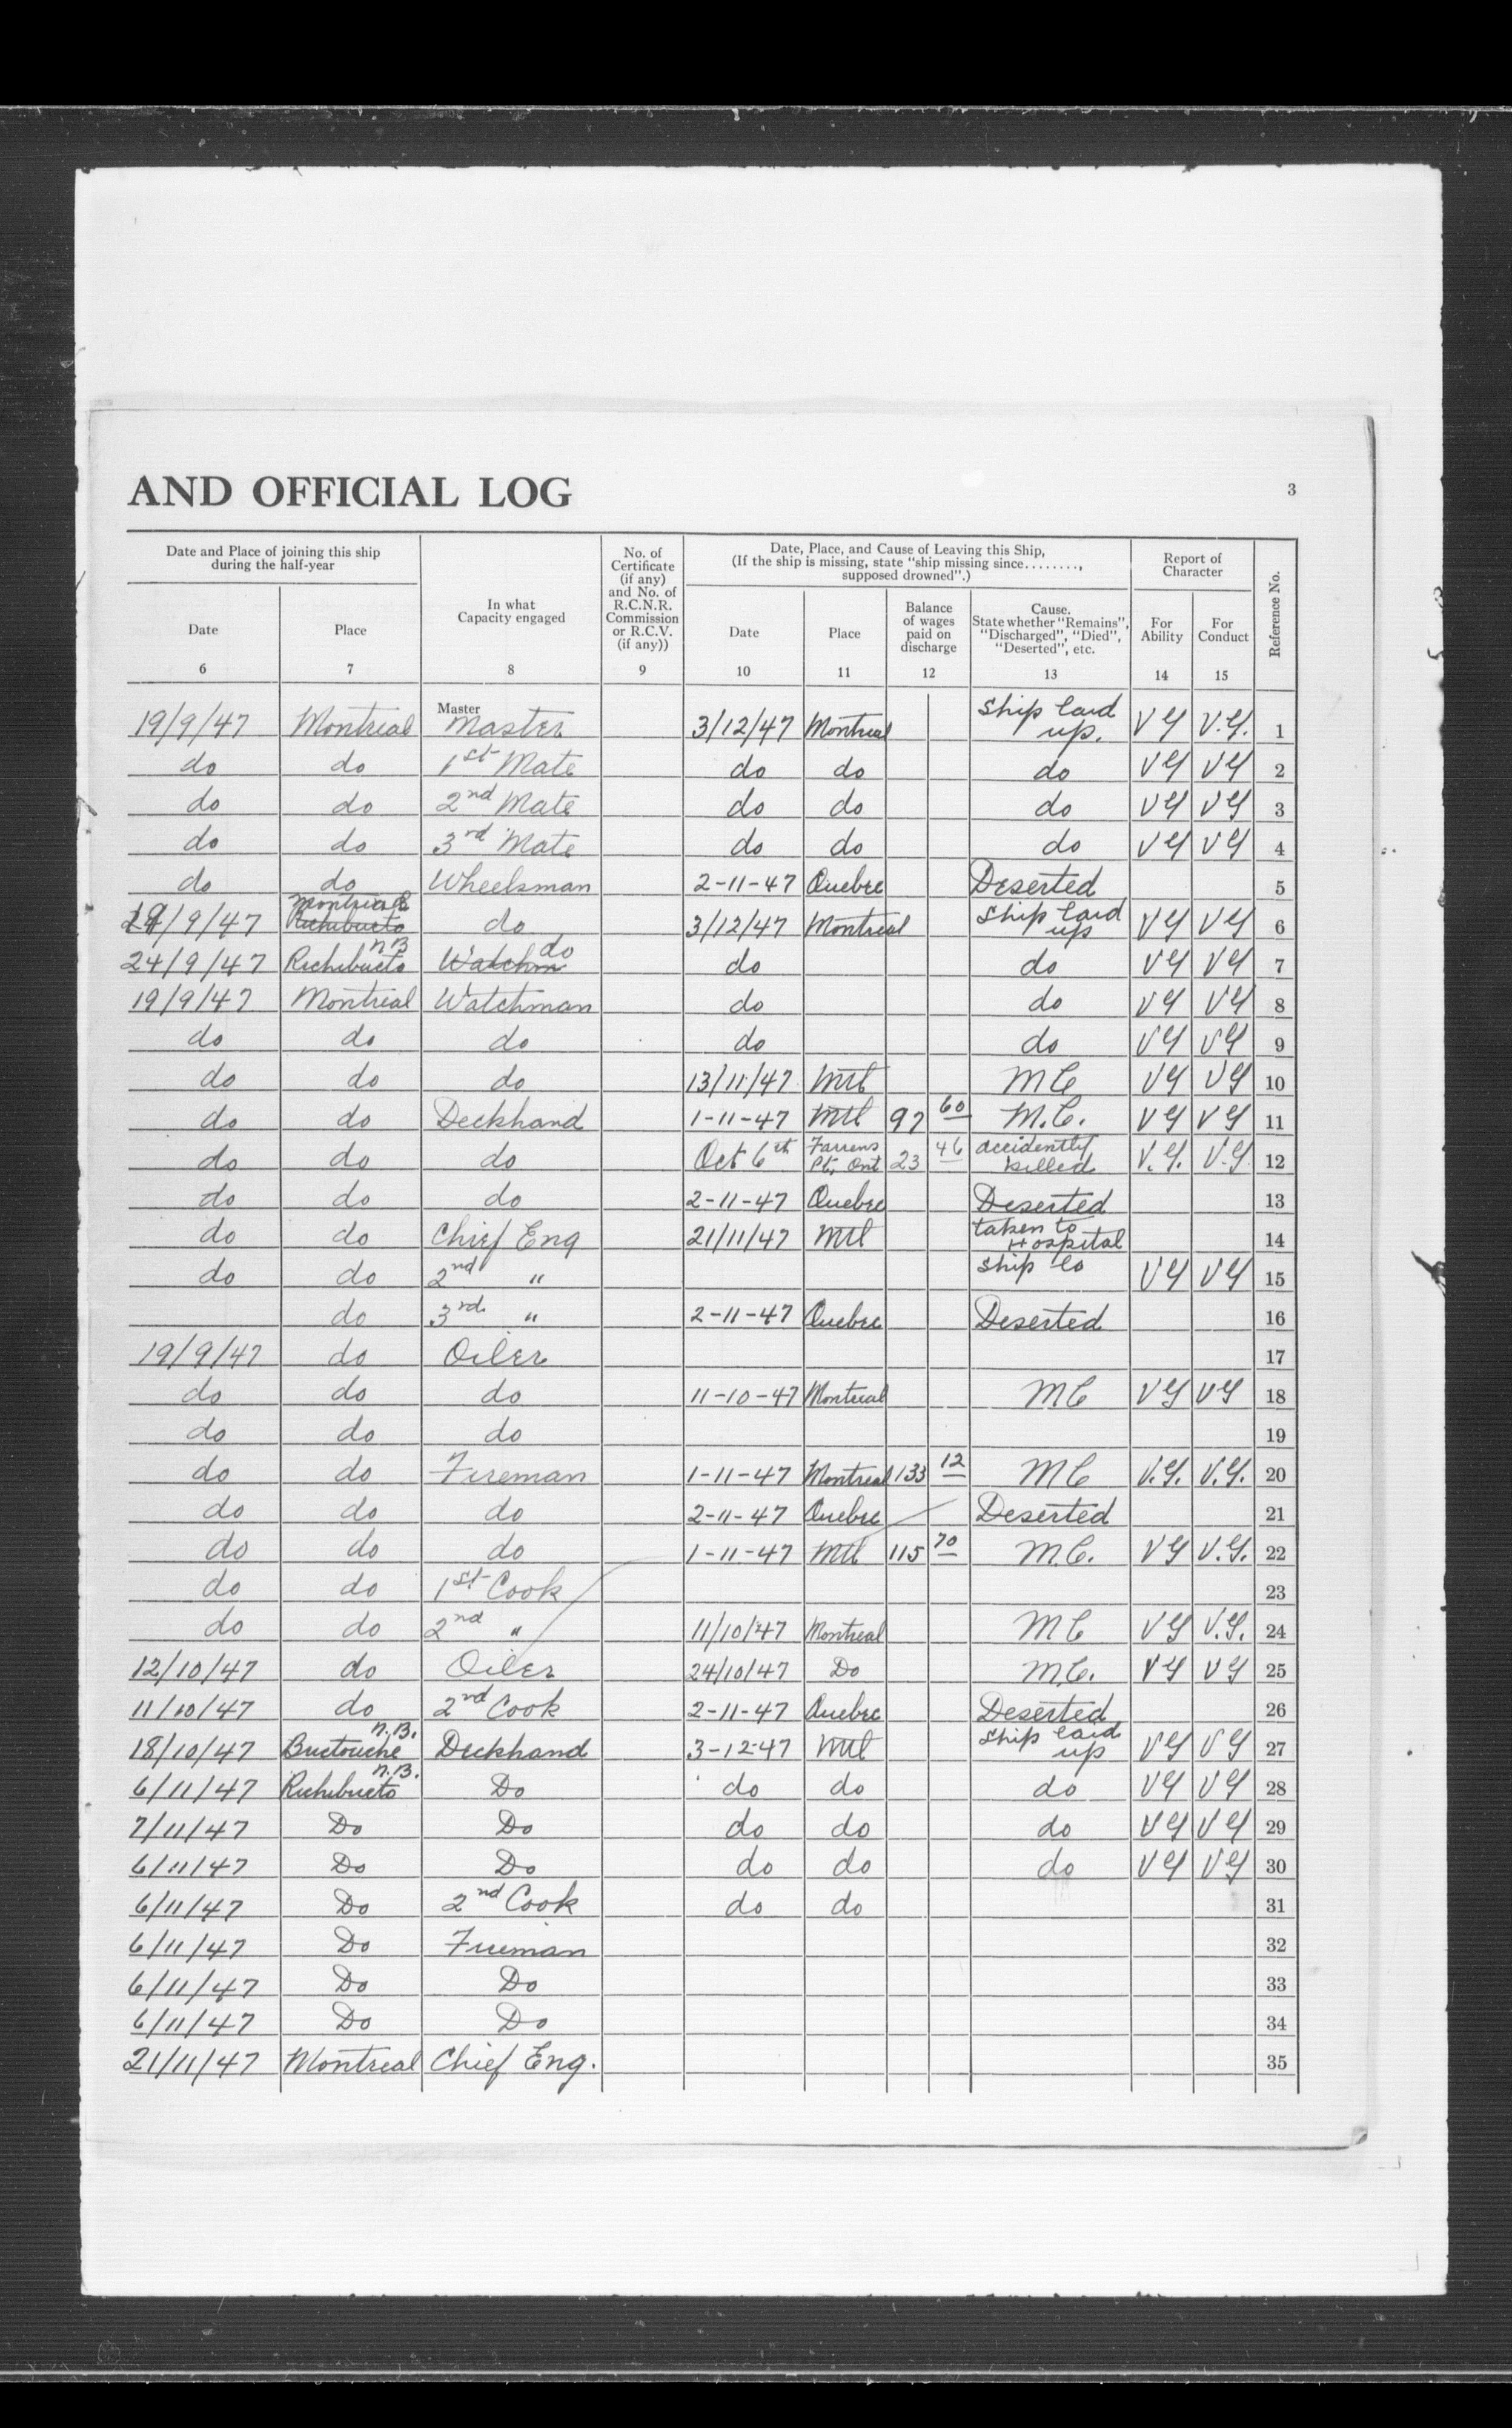 AND OFFICIAL LOG
3
Date and Place of joining this ship
during the half-year
In what
Capacity engaged
No. of
Certificate
(if any)
and No. of
R.C.N.R.
Commission
or R.C.V.
(if any))
Date, Place, and Cause of Leaving this Ship,
(If the ship is missing, state "ship missing since........,
supposed drowned".)
Report of
Character
Reference No.
Date
Place
Date
Place
Balance
of wages
paid on
discharge
Cause.
State whether "Remains",
"Discharged", "Died",
"Deserted", etc.
For
Ability
For
Conduct
6 7 8 9 10 11 12 13 14 15
Master
19/9/47 Montreal Master 3/12/47 Montreal Ship laid up. VG V.G. 1
do do 1st Mate do do do VG VG 2
do do 2nd Mate do do do VG VG 3
do do 3rd Mate do do do VG VG 4
do do Wheelsman 2-11-47 Quebec Deserted 5
19/9/47 Montreal Richibucto do 3/12/47 Montreal Ship laid up VG VG 6
24/9/47 Richibucto N.B. Watchm do do do VG VG 7
19/9/47 Montreal Watchman do do VG VG 8
do do do do do VG VG 9
do do do 13/11/47 Mtl MC VG VG 10
do do Deckhand 1-11-47 Mtl 97 60 M.C. VG VG 11
do do do Oct 6th Farrens Pt, Ont 23 46 accidently killed V.G. V.G. 12
do do do 2-11-47 Quebec Deserted 13
do do Chief Eng 21/11/47 Mtl taken to Hospital 14
do do 2nd " Ship la VG VG 15
do 3rd " 2-11-47 Quebec Deserted 16
19/9/47 do Oiler 17
do do do 11-10-47 Montreal MC VG VG 18
do do do 19
do do Fireman 1-11-47 Montreal 133 12 MC V.G. V.G. 20
do do do 2-11-47 Quebec Deserted 21
do do do 1-11-47 Mtl 115 70 M.C. VG V.G. 22
do do 1st Cook 23
do do 2nd " 11/10/47 Montreal MC VG V.G. 24
12/10/47 do Oiler 24/10/47 Do M.C. VG VG 25
11/10/47 do 2nd Cook 2-11-47 Quebec Deserted 26
18/10/47 Buctouche N.B. Deckhand 3-12-47 Mtl Ship laid up VG VG 27
6/11/47 Richibucto N.B. Do do do do VG VG 28
7/11/47 Do Do do do do VG VG 29
6/11/47 Do Do do do do VG VG 30
6/11/47 Do 2nd Cook do do 31
6/11/47 Do Fireman 32
6/11/47 Do Do 33
6/11/47 Do Do 34
21/11/47 Montreal Chief Eng. 35